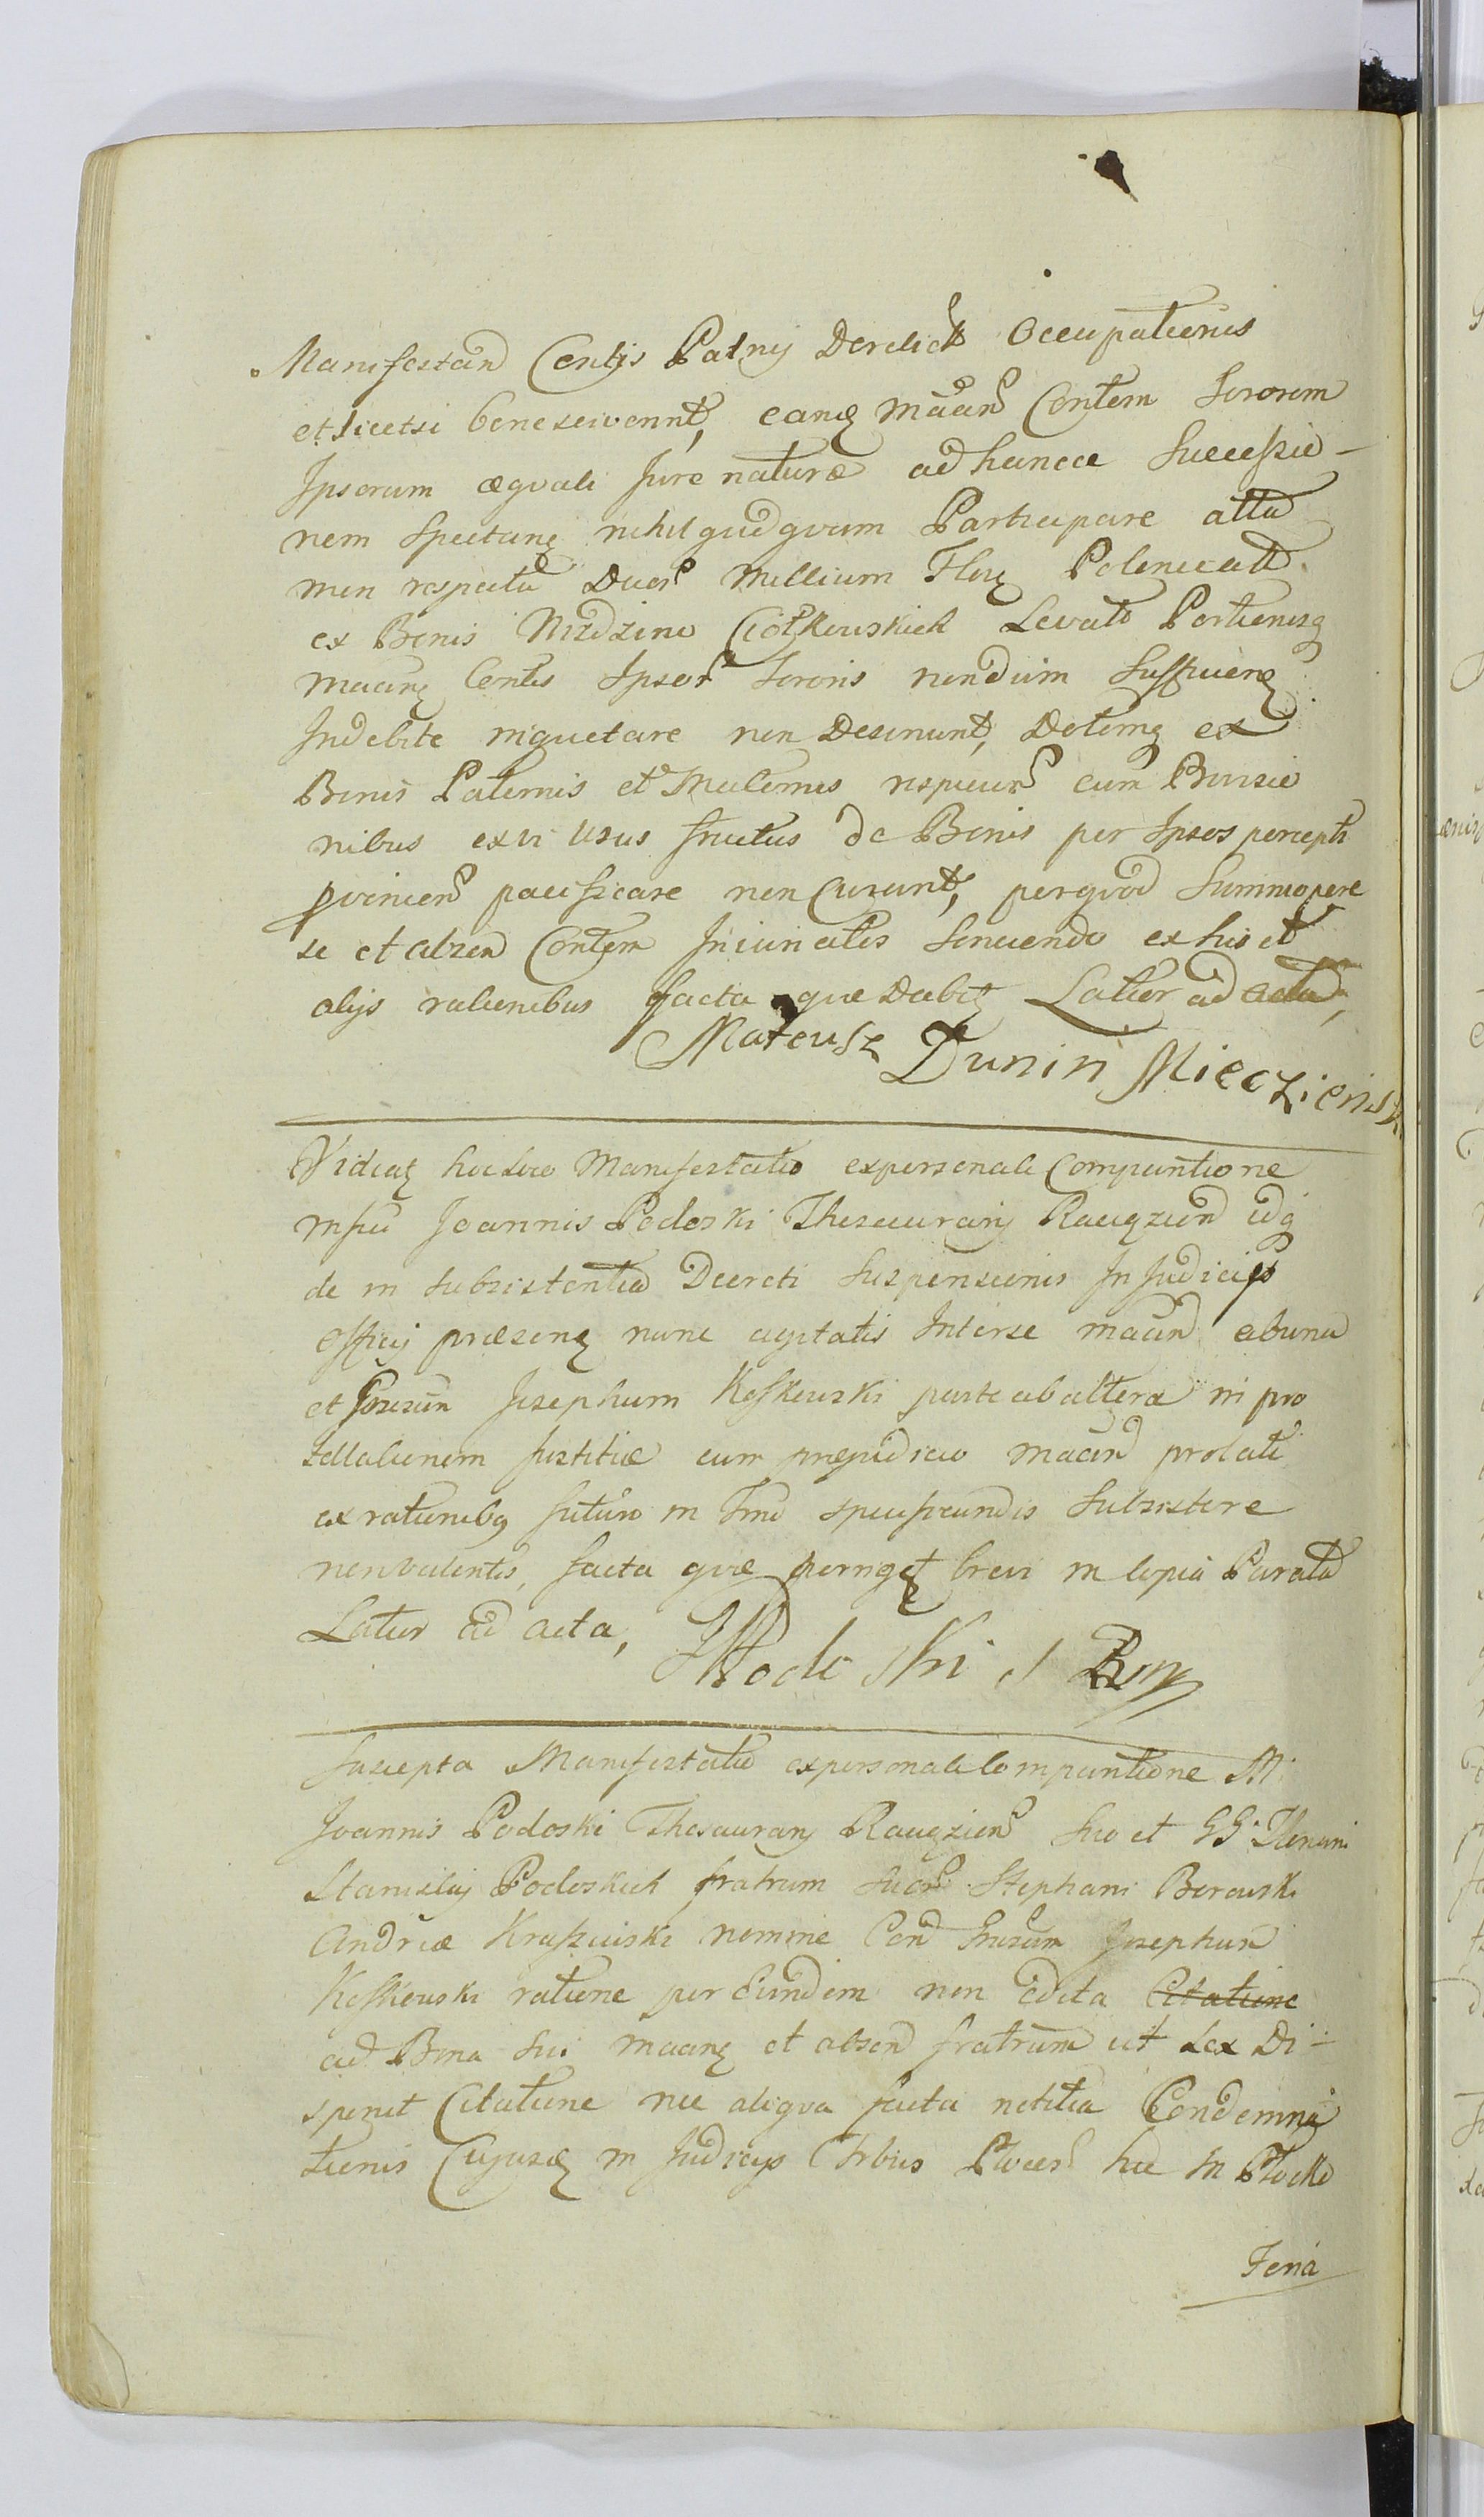 Manifestan Centis Patrij Derelict Occupationis
et licetsi bene sciverint, eanq maan Contem Sororem
Ipsorum æquali Jure naturæ ad hancce Successio-
nem Spectanq nihil quidquam Participare atta
men respectu Duor Millium Flor Polonicall
ex Bonis Niździno Ciółkowskich Levato Portionisq
maanq Centis Ipsor Sororis nondum Sufficienq
Indebite inquietare non Desinunt, Dotemq ex
Bonis Paternis et Maternis respicien cum Provisio
nibus ex vi Usus fructus de Bonis per Ipsos percepti
provenien pacificare non Curant, per quod Summopere
se et absen Contem Iniuriatis Sentiendo ex his et
alijs rationibus facta quæ Dabit Latior ad acta,
Mateusz Dunin Miecziensk
Vidiatq hocloco Manifestatio ex personali Comparitione
mfici Joannis Podoski Thesaurarij Raciązien idq
de in subsistentia Decreti Suspensionis In Judicijs
officij præsenq nunc agitatis Inter se maan ab una
et Grsum Josephum Koskowski parte ab altera in pro
tellationem Justitiæ cum præjudicio maan prolati
ex rationibq futuro in Tmo specificandis Subsistere
non valentis, facta quæ porrigęt brevi in copia Parata
Latior ad acta, JPodoski S Bmp
Suscepta Manifestatio ex personali Comparitione M
Joannis Podoski Thesaurarij Raciązien suo et GG
Stanislaj Podoskich fratrum suor Stephani Borowski
Andreæ Kraszewski nomine Con Grsum Josephum
Koskowski ratione per Eundem non Edita Citatione
ad Bona sui maanq et absen fratrum ut Lex Di-
sponit Citatione nec aliqua facta notitia Condemna
tionis Cujusq in Judicijs Trbus Plocen hic In Plocko
Feria